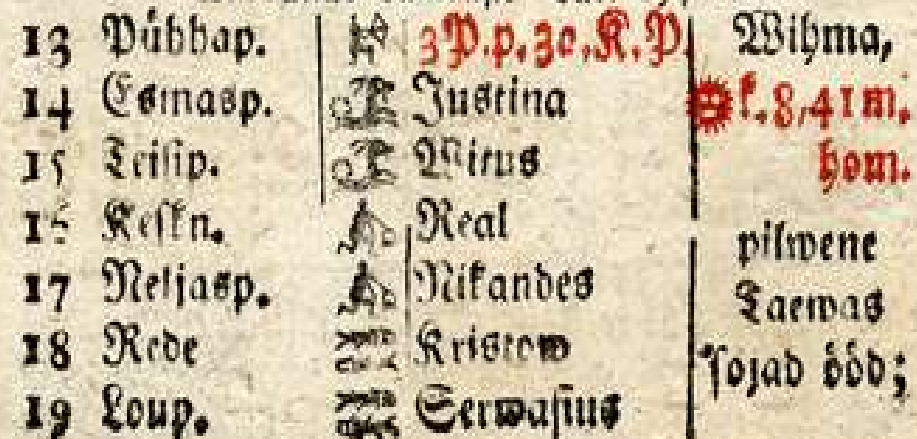 13 Pühhap. 3 P. p. 3e, K. P. Wihma,
14 Esmasp. Justina k. 8, 41 m.
15 Teisip. Witus hom.
16 Keskn. Real pilwene
17 Neljasp. Nikandes Taewas
18 Rede Kristow sojad ööd;
19 Loup. Serwasius